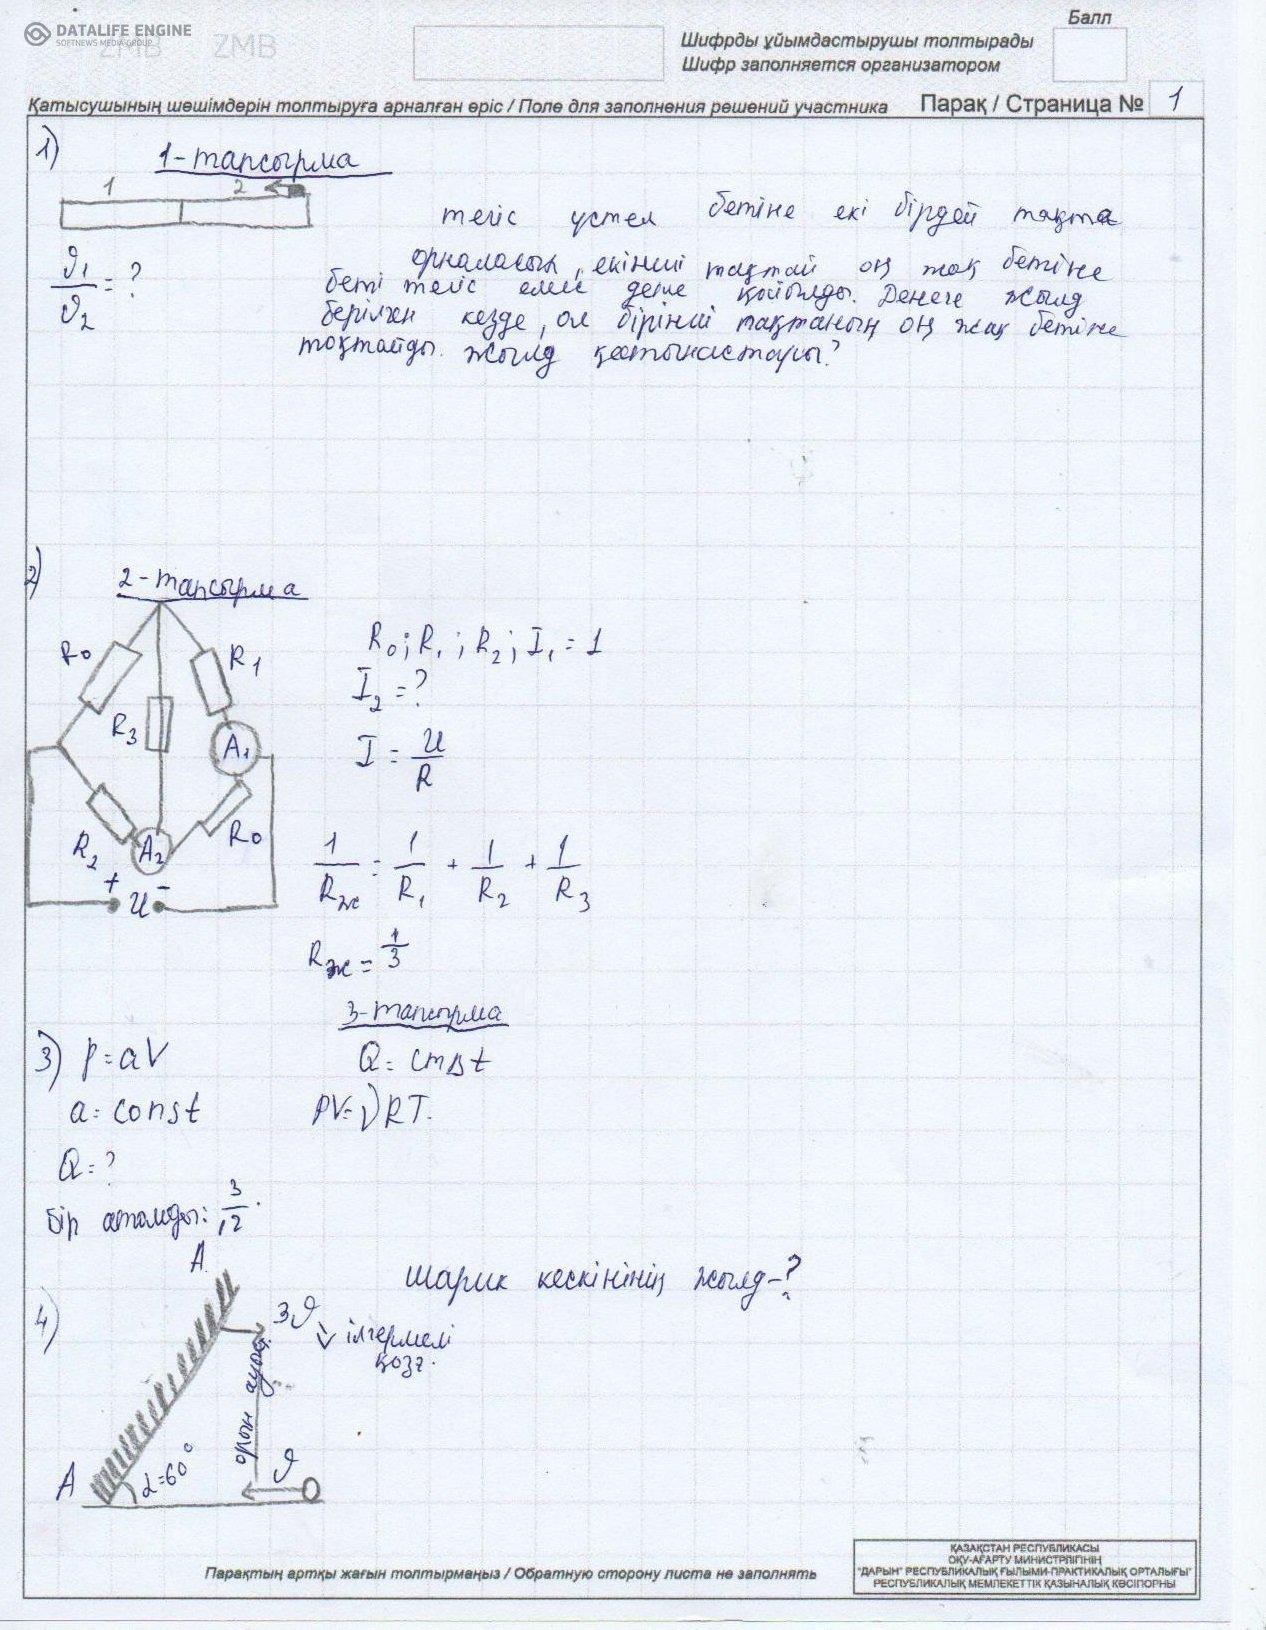 DATALIFE ENGINE
SOFTNEWS MEDIA GROUP
ZMB ZMB
Балл
Шифрды ұйымдастырушы толтырады
Шифр заполняется организатором
Қатысушының шешімдерін толтыруға арналған өріс / Поле для заполнения решений участника
Парақ / Страница № 1
1) 1-тапсырма
1 2
тегіс үстел бетіне екі бірдей тақта
орналасып, екінші тақтай оң жақ бетіне
беті тегіс емес дене қойылды. Денеге жылд
берілген кезде, ол бірінші тақтаның оң жақ бетіне
тоқтайды. жылд қатынастары?
ϑ1/ϑ2 = ?
2) 2-тапсырма
R0 R1
R3 A1
R2 A2 R0
+ U -
R0; R1; R2; I1 = 1
I2 = ?
I = U/R
1/Rж = 1/R1 + 1/R2 + 1/R3
Rж = 1/3
3-тапсырма
3) p=aV
Q = cmΔt
a=const
PV=νRT.
Q=?
бір атомды: 3/2.
4) A
шарик кескінінің жылд-?
3ϑ
ілгермелі
қозғ.
орын ауыс.
A α=60° ϑ
Парақтың артқы жағын толтырмаңыз / Обратную сторону листа не заполнять
ҚАЗАҚСТАН РЕСПУБЛИКАСЫ
ОҚУ-АҒАРТУ МИНИСТРЛІГІНІҢ
"ДАРЫН" РЕСПУБЛИКАЛЫҚ ҒЫЛЫМИ-ПРАКТИКАЛЫҚ ОРТАЛЫҒЫ"
РЕСПУБЛИКАЛЫҚ МЕМЛЕКЕТТІК ҚАЗЫНАЛЫҚ КӘСІПОРНЫ